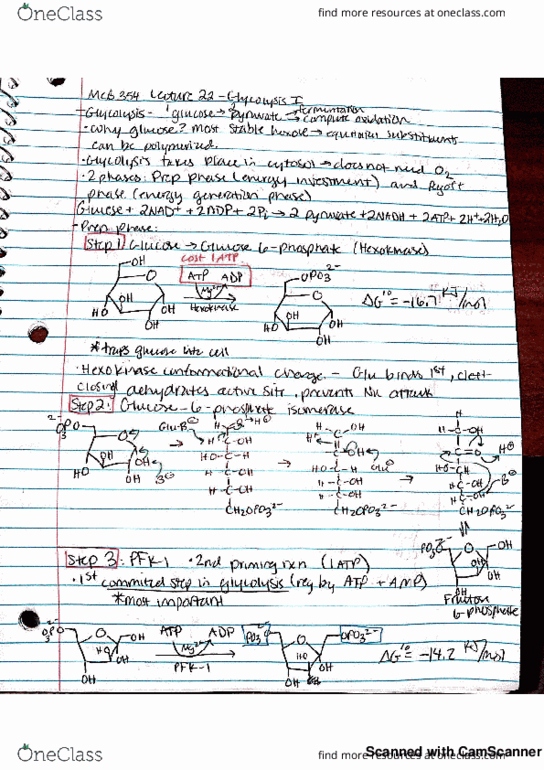 OneClass
find more resources at oneclass.com
MCB 354 Lecture 22 - Glycolysis I
- Glycolysis - 1 glucose → 2 pyruvate → fermentation
→ complete oxidation
- why glucose? most stable hexose → equatorial substituents
can be polymerized.
- Glycolysis takes place in cytosol → does not need O2
- 2 phases: Prep phase (energy investment) and Payoff
phase (energy generation phase)
Glucose + 2NAD+ + 2ADP + 2Pi → 2 pyruvate + 2NADH + 2ATP + 2H+ + 2H2O
- Prep phase:
Step 1: Glucose → Glucose 6-phosphate (Hexokinase)
cost 1 ATP
ATP ADP
Mg2+
Hexokinase
OH
O
OH
HO
OH
OH
OPO3 2-
O
OH
HO
OH
OH
ΔG'° = -16.7 KJ/mol
* traps glucose into cell
- Hexokinase conformational change - Glu binds 1st, cleft
closing dehydrates active site, prevents Nu attack
Step 2: Glucose-6-phosphate isomerase
Glu-B
CH2OPO3 2-
CH2OPO3 2-
CH2OPO3 2-
Fructose
6-phosphate
Step 3: PFK-1 • 2nd priming rxn (1 ATP)
• 1st committed step in glycolysis (reg by ATP + AMP)
* most important
ATP ADP
Mg2+
PFK-1
OPO3 2-
ΔG'° = -14.2 KJ/mol
Scanned with CamScanner
OneClass
find more resources at oneclass.com